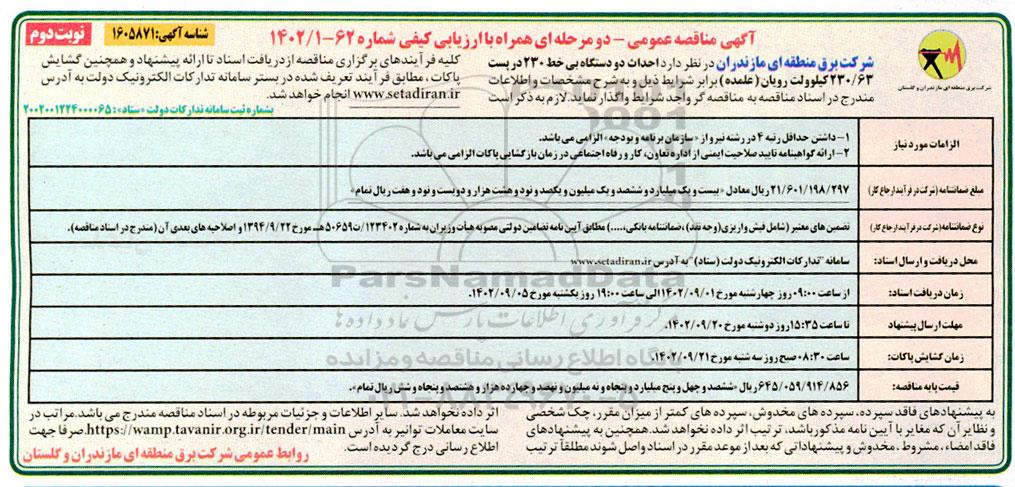 نوبت دوم
شناسه آگهی: ۱۶۰۵۸۷۱
آگهی مناقصه عمومی – دو مرحله ای همراه با ارزیابی کیفی شماره ۶۲-۱۴۰۲/۱
شرکت برق منطقه ای مازندران و گلستان
شرکت برق منطقه ای مازندران در نظر دارد احداث دو دستگاه بی خط ۲۳۰ در پست
۲۳۰/۶۳ کیلوولت رویان (علمده) برابر شرایط ذیل و به شرح مشخصات و اطلاعات
مندرج در اسناد مناقصه به مناقصه گر واجد شرایط واگذار نماید. لازم به ذکر است
کلیه فرآیندهای برگزاری مناقصه از دریافت اسناد تا ارائه پیشنهاد و همچنین گشایش
پاکات، مطابق فرآیند تعریف شده در بستر سامانه تدارکات الکترونیک دولت به آدرس
www.setadiran.ir انجام خواهد شد.
بشماره ثبت سامانه تدارکات دولت «ستاد»: ۲۰۰۲۰۰۱۲۲۴۰۰۰۰۶۵
الزامات مورد نیاز
۱- داشتن حداقل رتبه ۴ در رشته نیرو از «سازمان برنامه و بودجه» الزامی می باشد.
۲- ارائه گواهینامه تایید صلاحیت ایمنی از اداره تعاون، کار و رفاه اجتماعی در زمان بازگشایی پاکات الزامی می باشد.
مبلغ ضمانتنامه (شرکت در فرآیند ارجاع کار)
۲۱/۶۰۱/۱۹۸/۲۹۷ ریال معادل «بیست و یک میلیارد و ششصد و یک میلیون و یکصد و نود و هشت هزار و دویست و نود و هفت ریال تمام»
نوع ضمانتنامه (شرکت در فرآیند ارجاع کار)
تضمین های معتبر (شامل فیش واریزی (وجه نقد)، ضمانتنامه بانکی، ....) مطابق آیین نامه تضامین دولتی مصوبه هیأت وزیران به شماره ۱۲۳۴۰۲/ت۵۰۶۵۹هـ مورخ ۱۳۹۴/۹/۲۲ و اصلاحیه های بعدی آن (مندرج در اسناد مناقصه).
محل دریافت و ارسال اسناد:
سامانه "تدارکات الکترونیک دولت (ستاد)" به آدرس www.setadiran.ir
زمان دریافت اسناد:
از ساعت ۰۹:۰۰ روز چهارشنبه مورخ ۱۴۰۲/۰۹/۰۱ الی ساعت ۱۹:۰۰ روز یکشنبه مورخ ۱۴۰۲/۰۹/۰۵.
مهلت ارسال پیشنهاد
تا ساعت ۱۵:۳۵ روز دوشنبه مورخ ۱۴۰۲/۰۹/۲۰.
زمان گشایش پاکات:
ساعت ۰۸:۳۰ صبح روز سه شنبه مورخ ۱۴۰۲/۰۹/۲۱.
قیمت پایه مناقصه:
۶۴۵/۰۵۹/۹۱۴/۸۵۶ ریال «ششصد و چهل و پنج میلیارد و پنجاه و نه میلیون و نهصد و چهارده هزار و هشتصد و پنجاه و شش ریال تمام».
به پیشنهادهای فاقد سپرده، سپرده های مخدوش، سپرده های کمتر از میزان مقرر، چک شخصی
و نظایر آن که مغایر با آیین نامه مذکور باشد، ترتیب اثر داده نخواهد شد. همچنین به پیشنهادهای
فاقد امضاء، مشروط، مخدوش و پیشنهاداتی که بعد از موعد مقرر در اسناد واصل شوند مطلقاً ترتیب
اثر داده نخواهد شد. سایر اطلاعات و جزئیات مربوطه در اسناد مناقصه مندرج می باشد. مراتب در
سایت معاملات توانیر به آدرس https://wamp.tavanir.org.ir/tender/main صرفاً جهت
اطلاع رسانی درج گردیده است.
روابط عمومی شرکت برق منطقه ای مازندران و گلستان
ParsNamadData
پایگاه اطلاع رسانی مناقصه و مزایده
۰۲۱-۸۸۳۴۹۶۷۰-۵